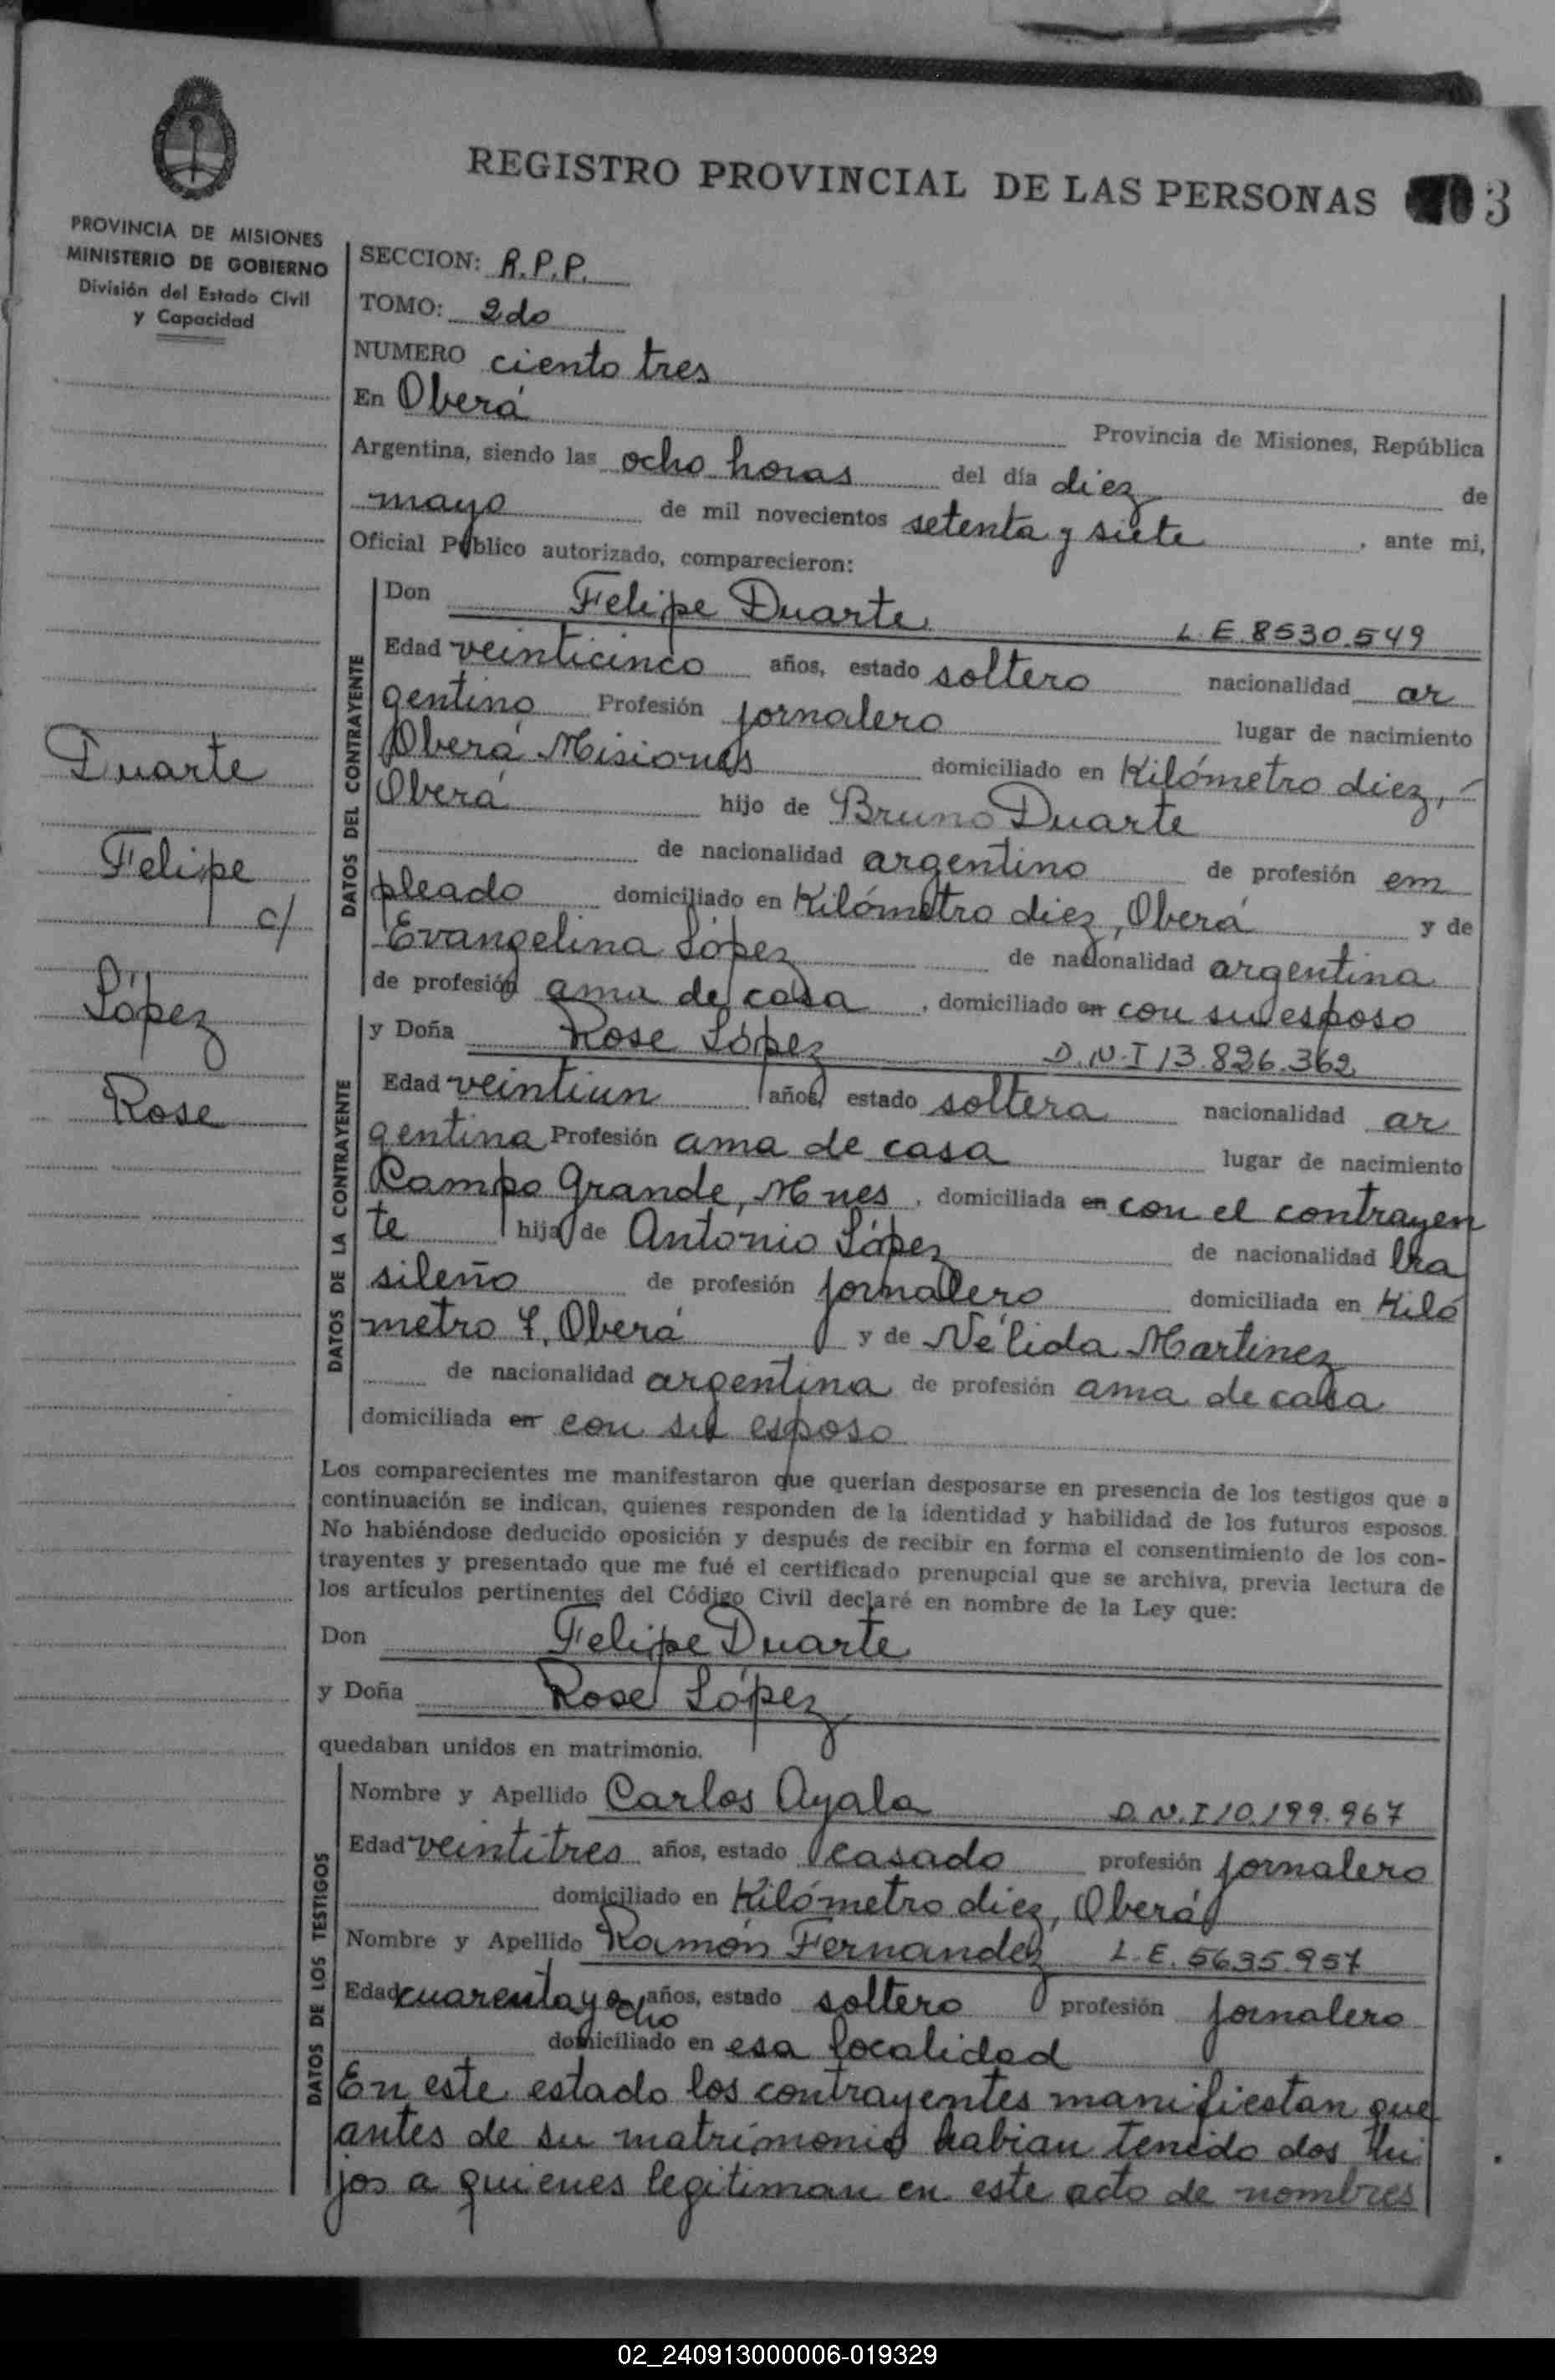 REGISTRO PROVINCIAL DE LAS PERSONAS 3
PROVINCIA DE MISIONES
MINISTERIO DE GOBIERNO
División del Estado Civil
y Capacidad
Duarte
Felipe
c/
López
Rose
SECCION: R.P.P.
TOMO: 2do
NUMERO ciento tres
En Oberá Provincia de Misiones, República
Argentina, siendo las ocho horas del día diez de
mayo de mil novecientos setenta y siete, ante mi,
Oficial Público autorizado, comparecieron:
DATOS DEL CONTRAYENTE
Don Felipe Duarte L.E. 8530.549
Edad veinticinco años, estado soltero nacionalidad ar
gentino Profesión jornalero lugar de nacimiento
Oberá Misiones domiciliado en Kilómetro diez,
Oberá hijo de Bruno Duarte
de nacionalidad argentino de profesión em
pleado domiciliado en Kilómetro diez, Oberá y de
Evangelina López de nacionalidad argentina
de profesión ama de casa, domiciliado en con su esposo
DATOS DE LA CONTRAYENTE
y Doña Rose López D.N.I 13.826.362
Edad veintiun años, estado soltera nacionalidad ar
gentina Profesión ama de casa lugar de nacimiento
Campo Grande, Mnes, domiciliada en con el contrayen
te hija de Antonio López de nacionalidad bra
sileño de profesión jornalero domiciliada en Kiló
metro 7, Oberá y de Nélida Martinez
de nacionalidad argentina de profesión ama de casa
domiciliada en con su esposo
Los comparecientes me manifestaron que querían desposarse en presencia de los testigos que a
continuación se indican, quienes responden de la identidad y habilidad de los futuros esposos.
No habiéndose deducido oposición y después de recibir en forma el consentimiento de los con-
trayentes y presentado que me fué el certificado prenupcial que se archiva, previa lectura de
los artículos pertinentes del Código Civil declaré en nombre de la Ley que:
Don Felipe Duarte
y Doña Rose López
quedaban unidos en matrimonio.
DATOS DE LOS TESTIGOS
Nombre y Apellido Carlos Ayala D.N.I 10.199.967
Edad veintitres años, estado casado profesión jornalero
domiciliado en Kilómetro diez, Oberá
Nombre y Apellido Ramón Fernandez L.E. 5635.957
Edad cuarenta y ocho años, estado soltero profesión jornalero
domiciliado en esa localidad
En este estado los contrayentes manifiestan que
antes de su matrimonio habian tenido dos hi
jos a quienes legitiman en este acto de nombres
02_240913000006-019329